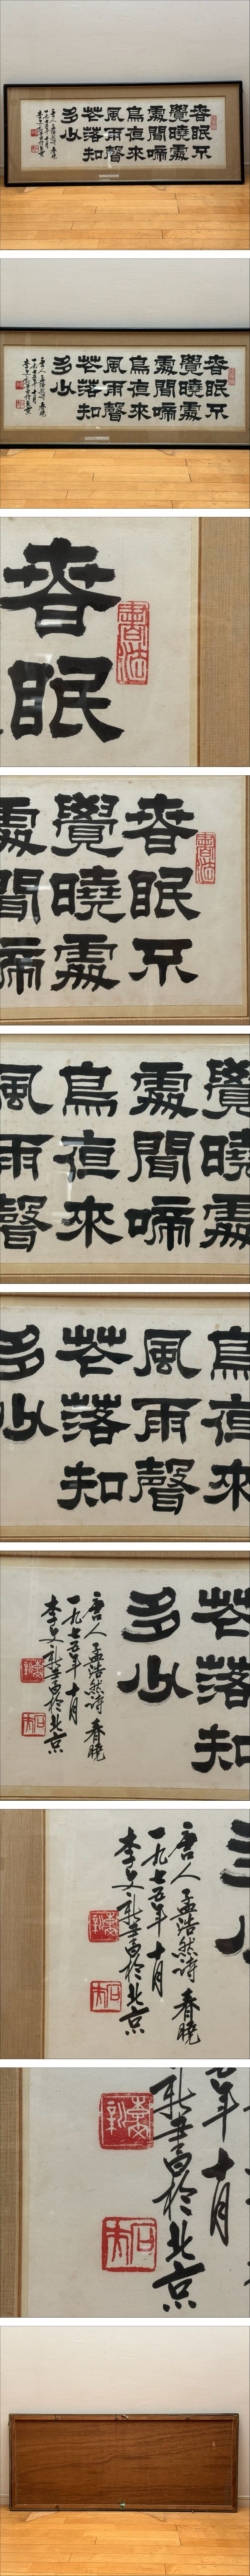 春眠不
覺曉處
處聞啼
鳥夜來
風雨聲
花落知
多少
唐人孟浩然詩春曉
一九七五年十月
李文新書於北京
書法